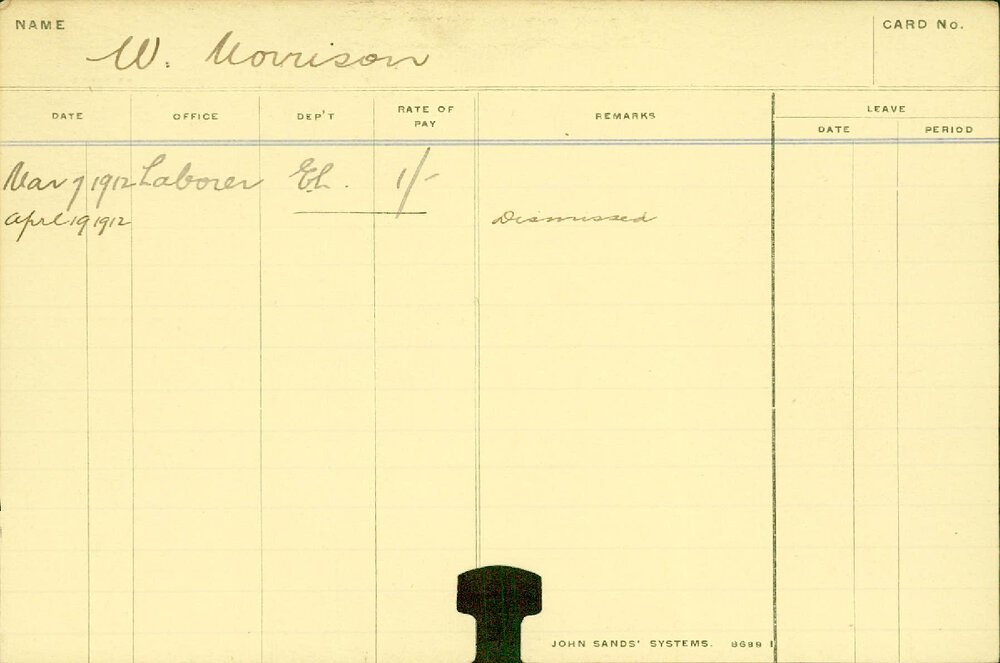 NAME
W. Morrison
CARD No.
DATE OFFICE DEP'T RATE OF PAY REMARKS LEAVE
DATE PERIOD
Mar 7 1912 Laborer El. 1/-
April 19 1912 Dismissed
JOHN SANDS' SYSTEMS. 8689 1